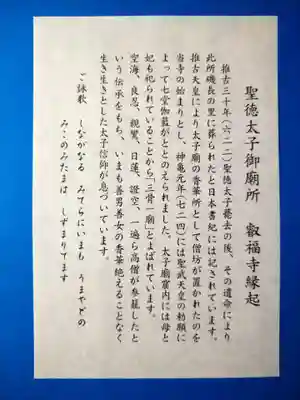 聖徳太子御廟所　叡福寺縁起
推古三十年(六二二)聖徳太子薨去の後、その遺命により
此所磯長の里に葬られたと日本書紀には記されています。
推古天皇により太子廟の香華所として僧坊が置かれたのを
当寺の始まりとし、神亀元年(七二四)には聖武天皇の勅願に
よって七堂伽藍がととのえられました。太子廟窟内には母と
妃も祀られていることから「三骨一廟」とよばれています。
空海、良忍、親鸞、日蓮、證空、一遍ら高僧が参籠したと
いう伝承をもち、いまも善男善女の香華絶えることなく
生き生きとした太子信仰が息づいています。
ご詠歌　しながなる　みてらにいまも　うまやどの
みこのみたまは　しずまりてます